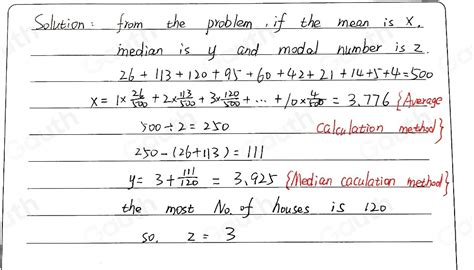 Solution: from the problem, if the mean is x,
median is y and modal number is z.
26 + 113 + 120 + 95 + 60 + 42 + 21 + 14 + 5 + 4 = 500
x = 1 × 26/500 + 2 × 113/500 + 3 × 120/500 + ... + 10 × 4/500 = 3.776 {Average
500 ÷ 2 = 250 calculation method}
250 - (26 + 113) = 111
y = 3 + 111/120 = 3.925 {Median caculation method}
the most No. of houses is 120
so, z = 3
Gauth